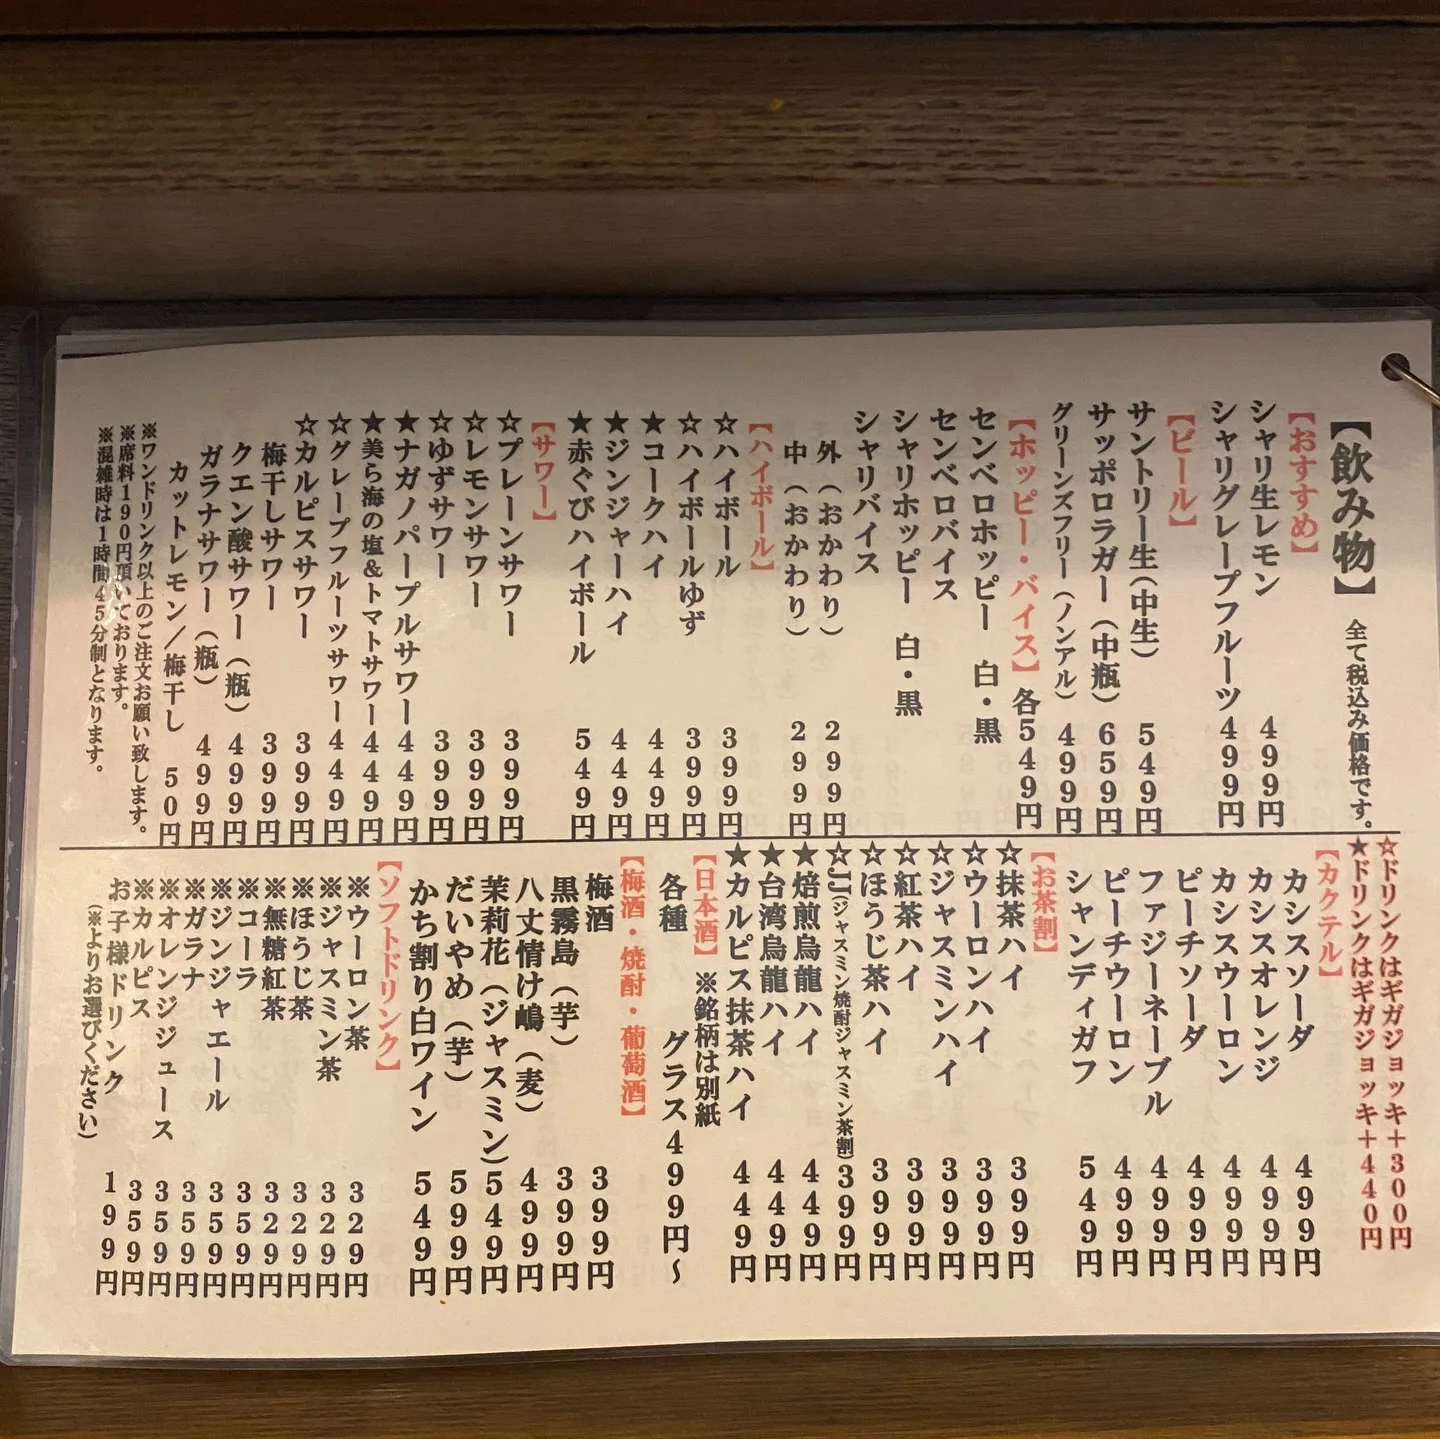 【飲み物】 全て税込み価格です。
【おすすめ】
シャリ生レモン 499円
シャリグレープフルーツ 499円
【ビール】
サントリー生(中生) 549円
サッポロラガー(中瓶) 659円
グリーンズフリー(ノンアル) 499円
【ホッピー・バイス】各549円
センベロホッピー 白・黒
センベロバイス
シャリホッピー 白・黒
シャリバイス
外(おかわり) 299円
中(おかわり) 299円
【ハイボール】
☆ハイボール 399円
☆ハイボールゆず 399円
★コークハイ 449円
★ジンジャーハイ 449円
★赤ぐびハイボール 549円
【サワー】
☆プレーンサワー 399円
☆レモンサワー 399円
☆ゆずサワー 399円
★ナガノパープルサワー 449円
★美ら海の塩&トマトサワー 449円
☆グレープフルーツサワー 449円
☆カルピスサワー 399円
梅干しサワー 399円
クエン酸サワー(瓶) 499円
ガラナサワー(瓶) 499円
カットレモン/梅干し 50円
※ワンドリンク以上のご注文お願い致します。
※席料190円頂いております。
※混雑時は1時間45分制となります。
☆ドリンクはギガジョッキ+300円
★ドリンクはギガジョッキ+440円
【カクテル】
カシスソーダ 499円
カシスオレンジ 499円
カシスウーロン 499円
ピーチソーダ 499円
ファジーネーブル 499円
ピーチウーロン 499円
シャンディガフ 549円
【お茶割】
☆抹茶ハイ 399円
☆ウーロンハイ 399円
☆ジャスミンハイ 399円
☆紅茶ハイ 399円
☆ほうじ茶ハイ 399円
☆JJ(ジャスミン焼酎ジャスミン茶割) 399円
★焙煎烏龍ハイ 449円
★台湾烏龍ハイ 449円
★カルピス抹茶ハイ 449円
【日本酒】※銘柄は別紙
各種 グラス499円～
【梅酒・焼酎・葡萄酒】
梅酒 399円
黒霧島(芋) 399円
八丈情け嶋(麦) 499円
茉莉花(ジャスミン) 549円
だいやめ(芋) 599円
かち割り白ワイン 549円
【ソフトドリンク】
※ウーロン茶 329円
※ジャスミン茶 329円
※ほうじ茶 329円
※無糖紅茶 329円
※コーラ 359円
※ジンジャエール 359円
※ガラナ 359円
※オレンジジュース 359円
※カルピス 359円
お子様ドリンク 199円
(※よりお選びください)